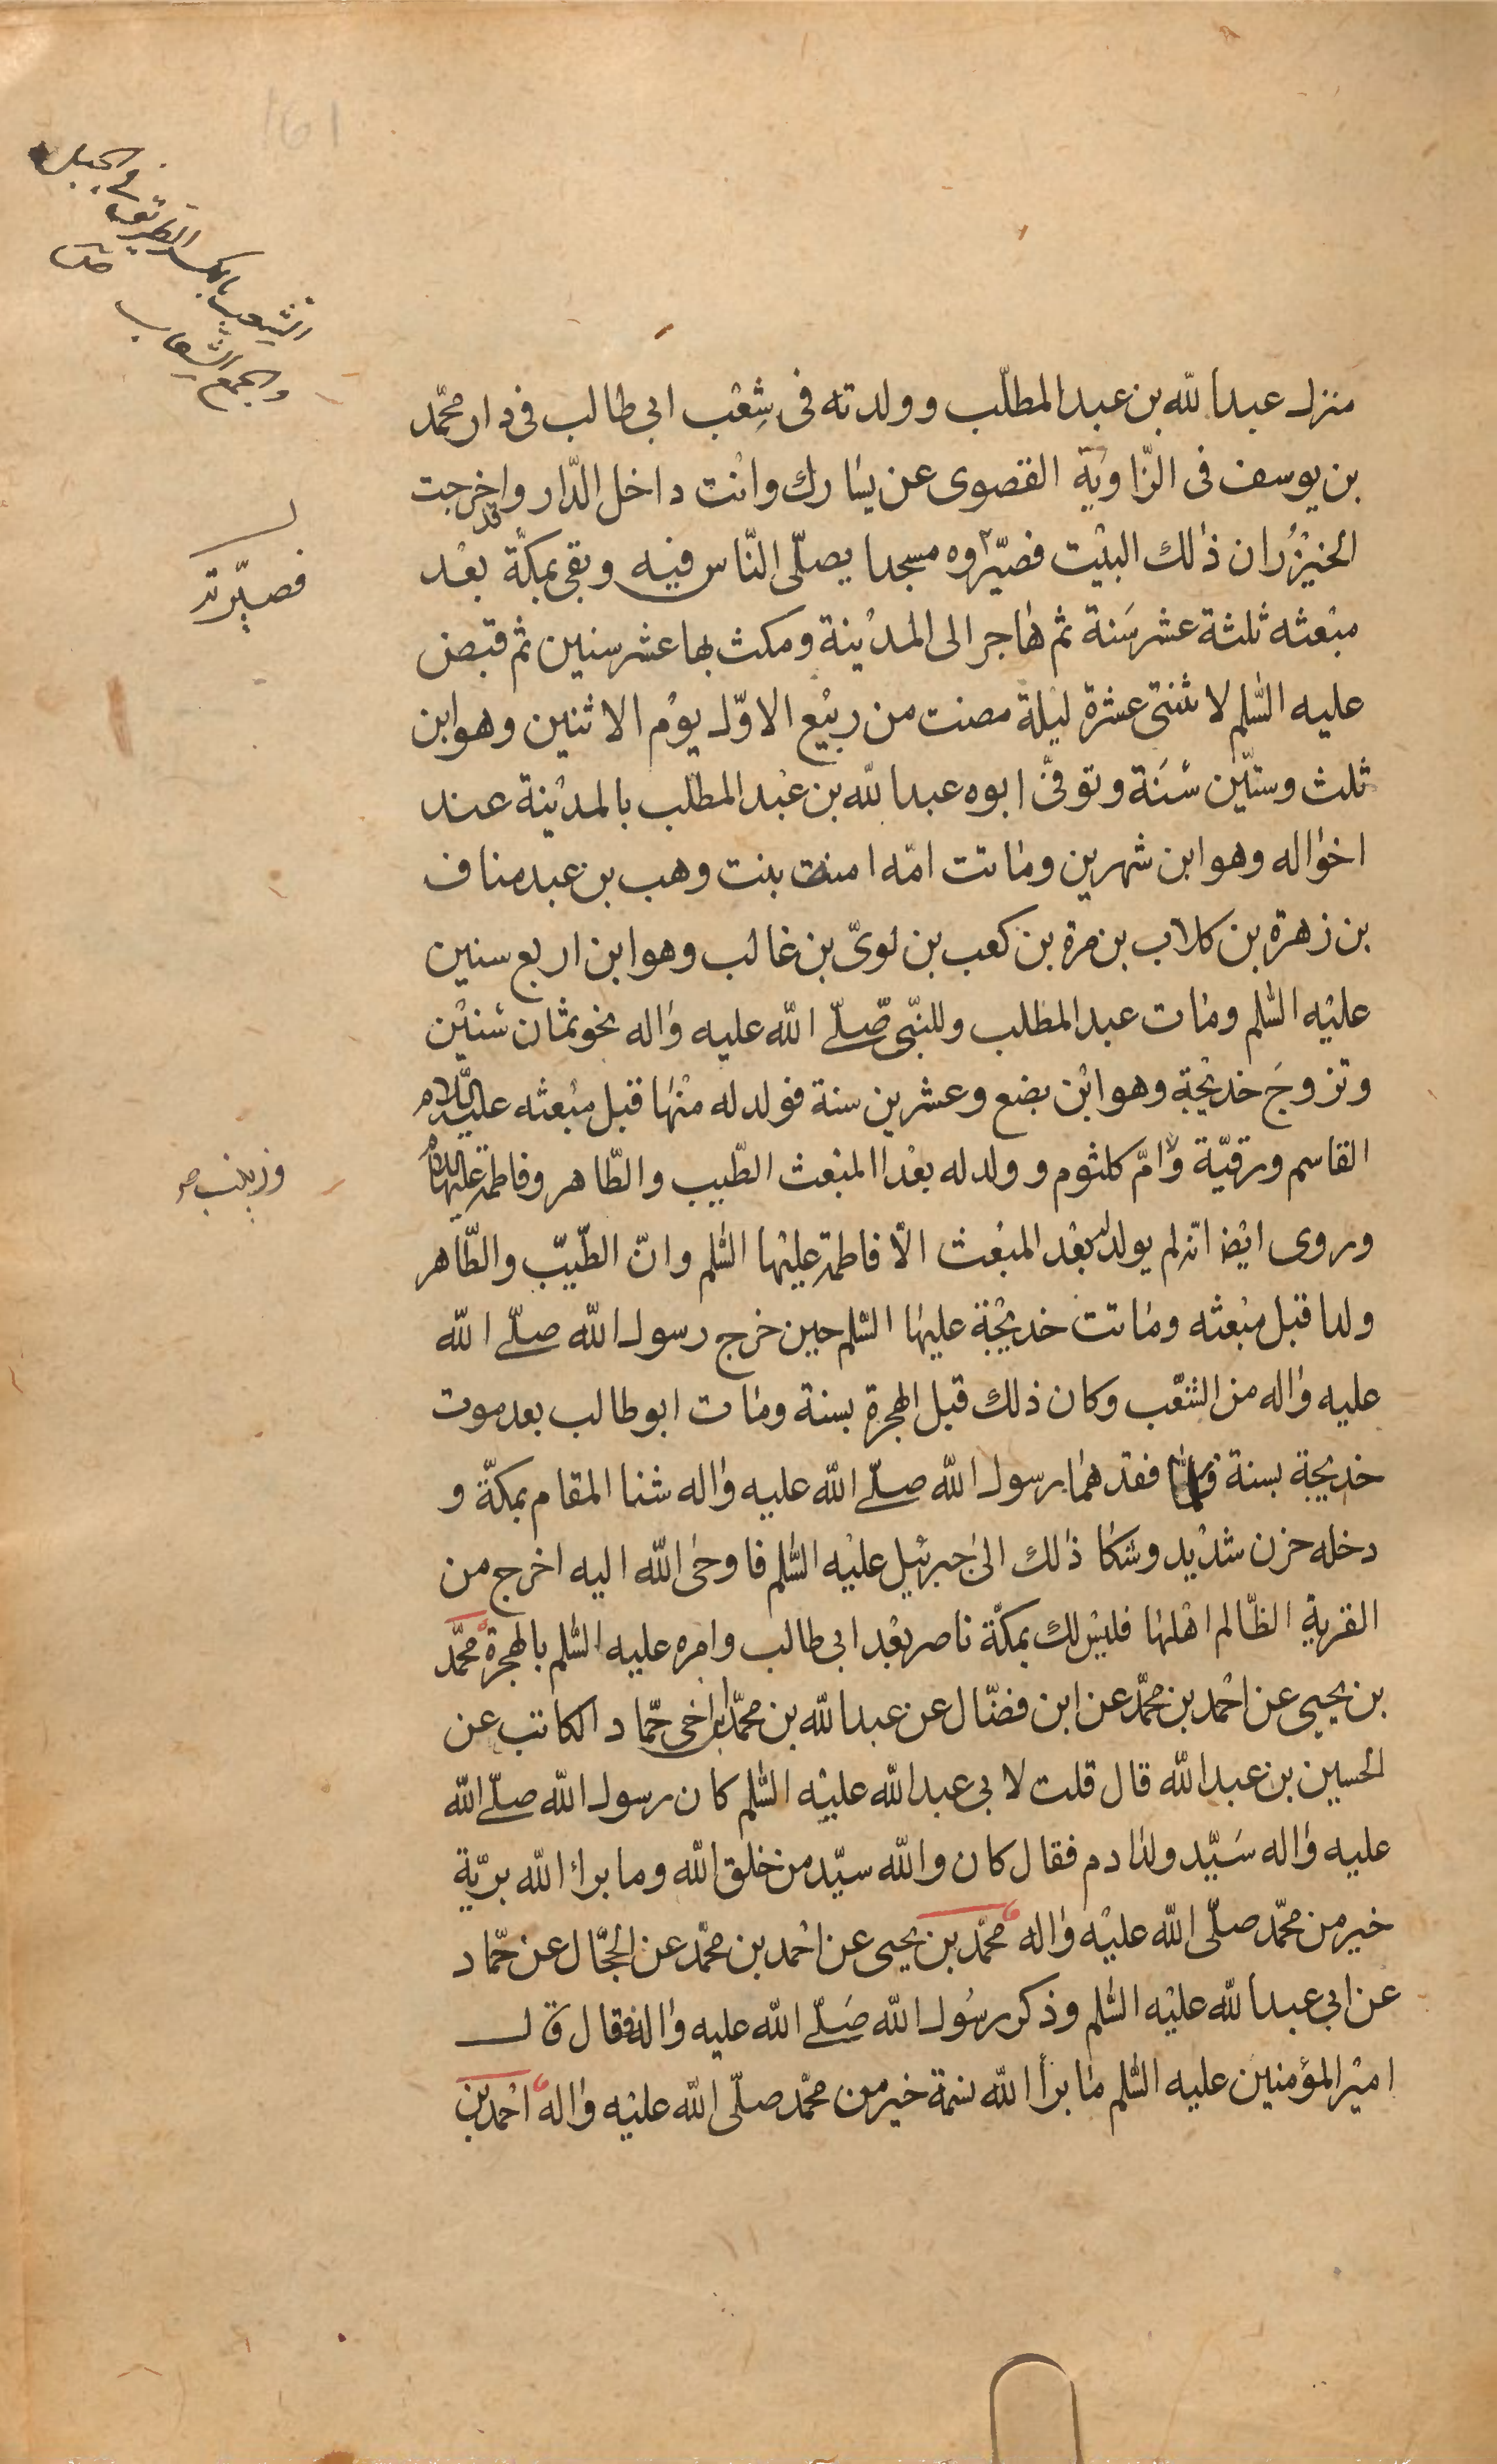 منزل عبد الله بن عبد المطلّب وولدته فى شِعْب ابى طالب فى دار محمّد
بن يوسف فى الزّاوية القصوى عن يسارك وانت داخل الدّار وقد اخرجت
الخيزُران ذلك البيت فصيّروه مسجدا يصلّى النّاس فيه وبقى بمكّة بعد
مبعثه ثلثة عشر سَنة ثم هاجر الى المدينة ومكث بها عشر سنين ثم قبض
عليه السّلم لاثنتى عشرة ليلة مضت من ربيع الاوّل يوم الاثنين وهو ابن
ثلث وستّين سَنَة وتوفّى ابوه عبد الله بن عبد المطلب بالمدينة عند
اخواله وهو ابن شهرين وماتت امّه امنة بنت وهب بن عبد مناف
بن زهرة بن كلاب بن مرة بن كعب بن لوىّ بن غالب وهو ابن اربع سنين
عليه السّلم ومات عبد المطلب وللنّبى صلّى الله عليه واله نحو ثمان سنين
وتزوجَ خديجة وهو ابن بضع وعشرين سنة فولد له منها قبل مبعثه عليه السّلام
القاسم ورقيّة وامّ كلثوم وولد له بعد المبعث الطّيب والطّاهر وفاطمة عليها السلام
وروى ايضا انّه لم يولد له بعد المبعث الّا فاطمة عليها السّلم وانّ الطّيّب والطّاهر
ولدا قبل مبعثه وماتت خديجة عليها السّلم حين خرج رسول الله صلّى الله
عليه واله من الشّعب وكان ذلك قبل الهجرة بسنة ومات ابو طالب بعد موت
خديجة بسنة فلمّا فقدهما رسول الله صلّى الله عليه واله شنا المقام بمكّة و
دخله حزن شديد وشكا ذلك الى جبرئيل عليه السّلم فاوحى الله اليه اخرج من
القرية الظّالم اهلها فليس لك بمكّة ناصر بعد ابى طالب وامره عليه السّلم بالهجرة محمّد
بن يحيى عن احمد بن محمّد عن ابن فضّال عن عبد الله بن محمّد ابن اخى حمّاد الكاتب عن
الحسين بن عبد الله قال قلت لابى عبد الله عليه السّلم كان رسول الله صلّى الله
عليه واله سَيّد ولد ادم فقال كان والله سيّد من خلق الله وما برا الله بريّة
خير من محمّد صلّى الله عليه واله محمّد بن يحيى عن احمد بن محمّد عن الحجّال عن حمّاد
عن ابى عبد الله عليه السّلم وذكر رسُول الله صَلّى الله عليه واله فقال قال
امير المؤمنين عليه السّلم ما برأ الله نسمة خير من محمّد صلّى الله عليه واله احمد بن
الشِعب بالكسر الطريق فى الجبل
والجمع الشعاب
فصيّرته
وزينب صح